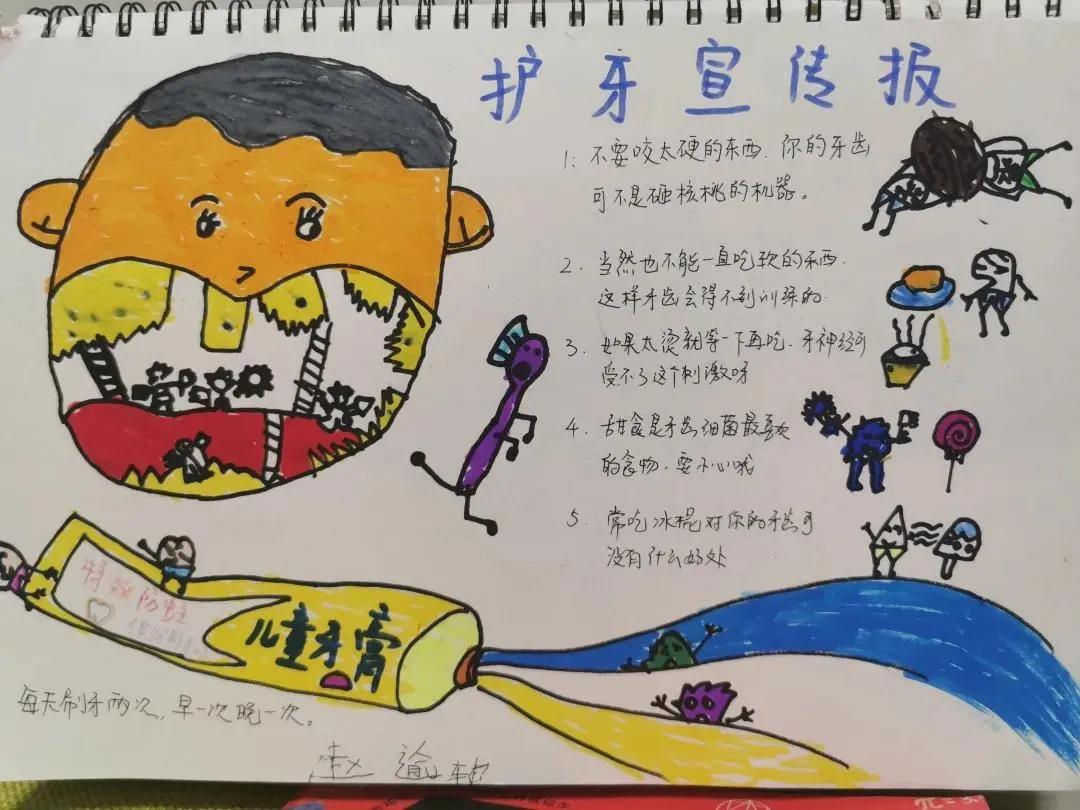 护牙宣传报
1: 不要咬太硬的东西.你的牙齿
可不是砸核桃的机器。
2. 当然也不能一直吃软的东西.
这样牙齿会得不到训练的.
3. 如果太烫就等一下再吃.牙神经可
受不了这个刺激呀
4. 甜食是牙齿细菌最喜欢
的食物.要小心哦
5. 常吃冰棍对你的牙齿可
没有什么好处
特效防蛀
儿童牙膏
每天刷牙两次,早一次晚一次。
赵